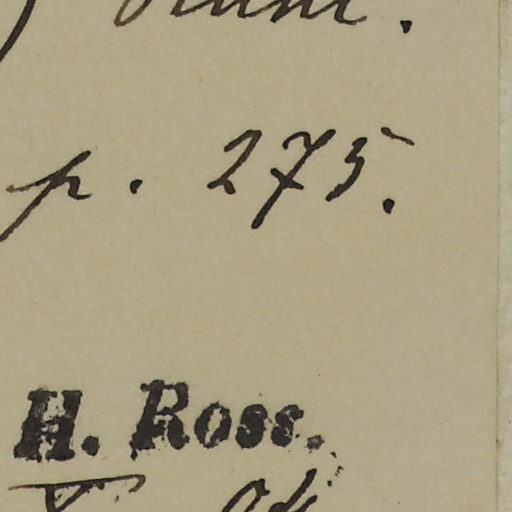 p. 275.
H. Ross.